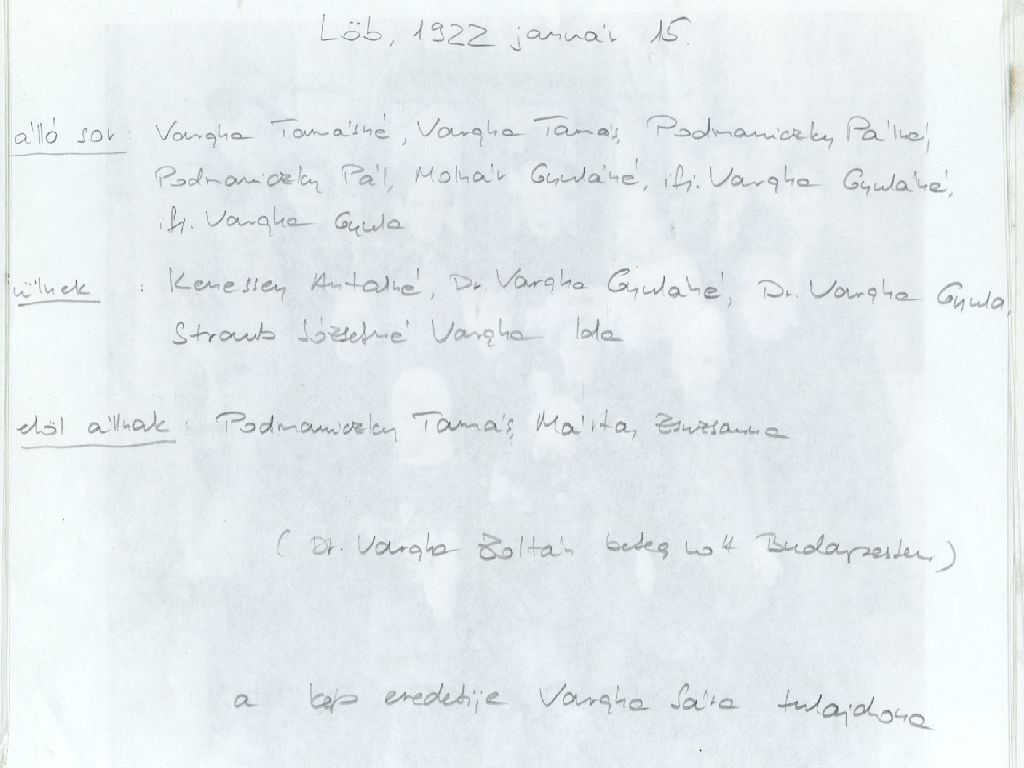 Löb, 1922 január 15.
álló sor: Vargha Tamásné, Vargha Tamás, Podmaniczky Pálné,
Podmaniczky Pál, Molnár Gyuláné, ifj. Vargha Gyuláné,
ifj. Vargha Gyula
ülnek : Kenessey Antalné, Dr. Vargha Gyuláné, Dr. Vargha Gyula,
Straub Józsefné Vargha Ida
elöl állnak: Podmaniczky Tamás, Márta, Zsuzsanna
(Dr. Vargha Zoltán beteg volt Budapesten)
a kép eredetije Vargha Sára tulajdona